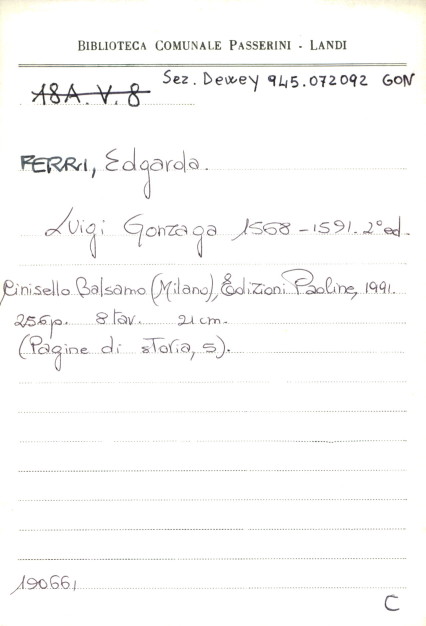 BIBLIOTECA COMUNALE PASSERINI - LANDI
18A. V. 8 Sez. Dewey 945.072092 GON
FERRI, Edgarda.
Luigi Gonzaga 1568-1591. 2° ed.
Cinisello Balsamo (Milano), Edizioni Paoline, 1991.
256p. 8 tav. 21 cm.
(Pagine di storia, 5).
190661
C